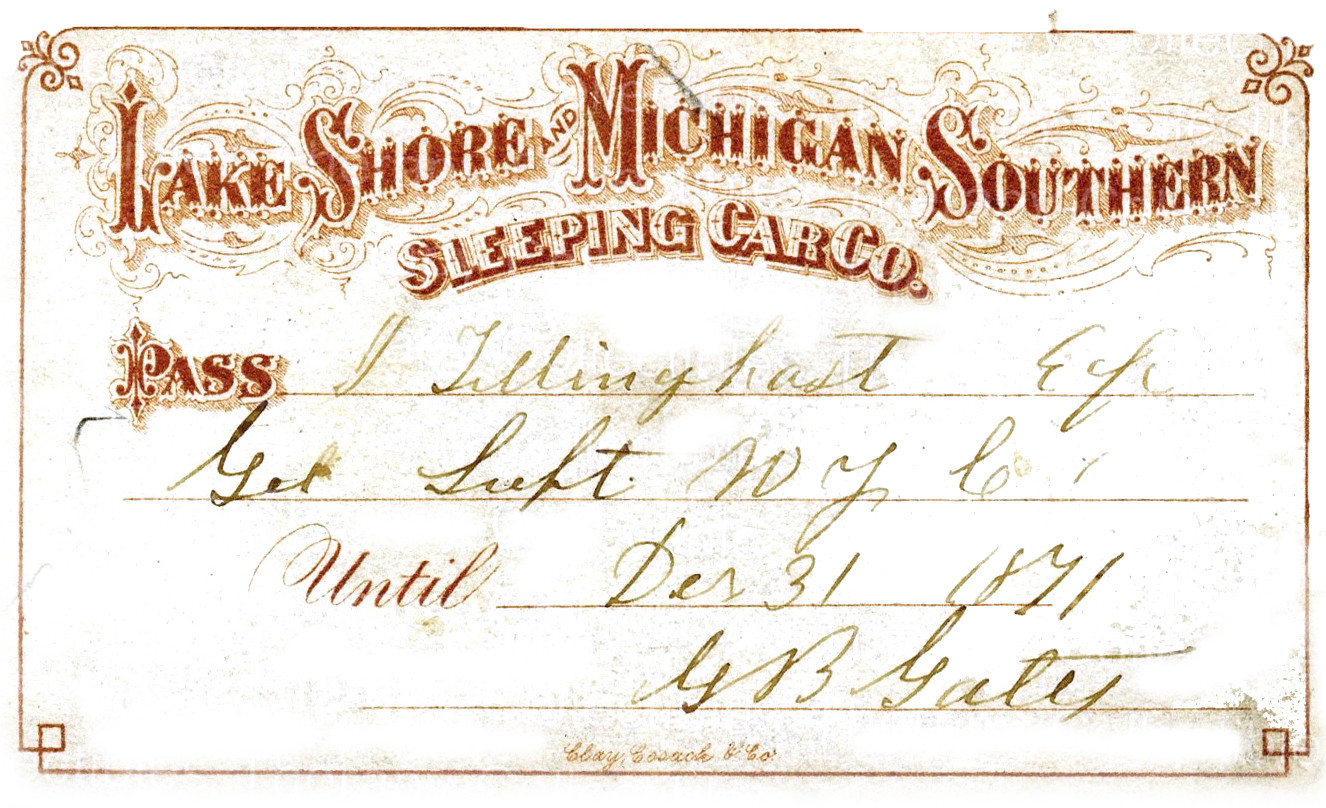 LAKE SHORE AND MICHIGAN SOUTHERN
SLEEPING CAR CO.
PASS J Tillinghast Esq
Gel Supt N Y C
Until Dec 31 1871
G B Gates
Clay, Cosack & Co